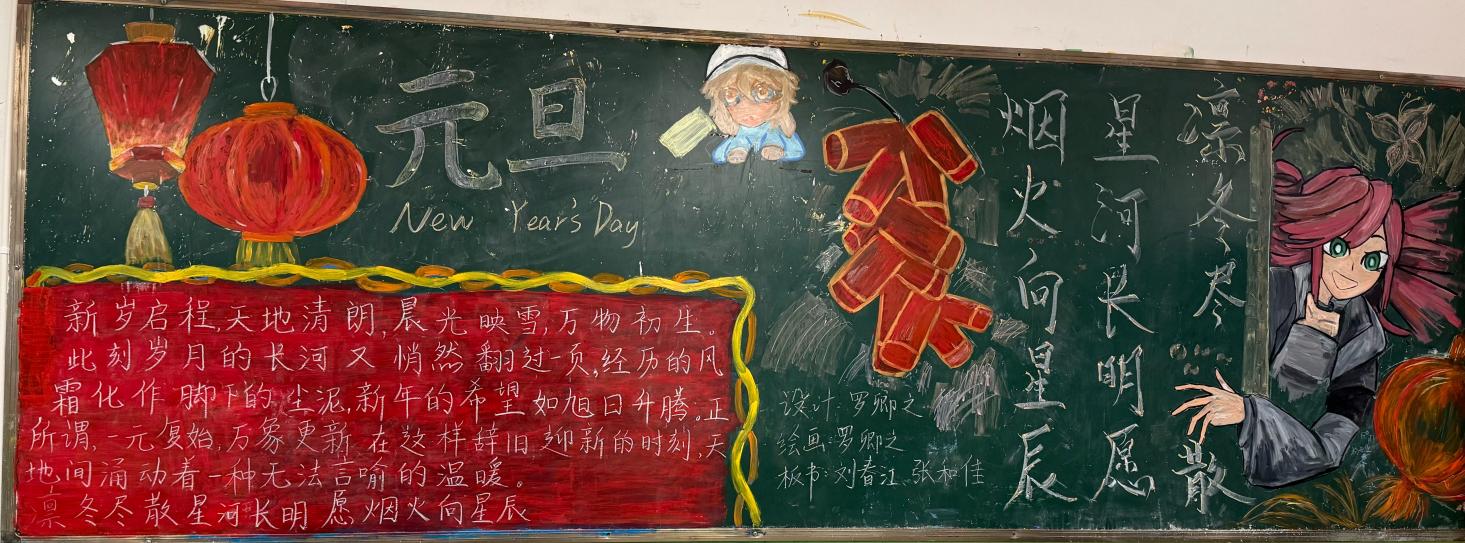 元旦
New Year's Day
新岁启程,天地清朗,晨光映雪,万物初生。
此刻岁月的长河又悄然翻过一页,经历的风
霜化作脚下的尘泥,新年的希望如旭日升腾。正
所谓,一元复始,万象更新,在这样辞旧迎新的时刻,天
地间涌动着一种无法言喻的温暖。
凛冬尽散星河长明愿烟火向星辰
凛冬尽散
星河长明愿
烟火向星辰
设计:罗卿之
绘画:罗卿之
板书:刘春江 张和佳